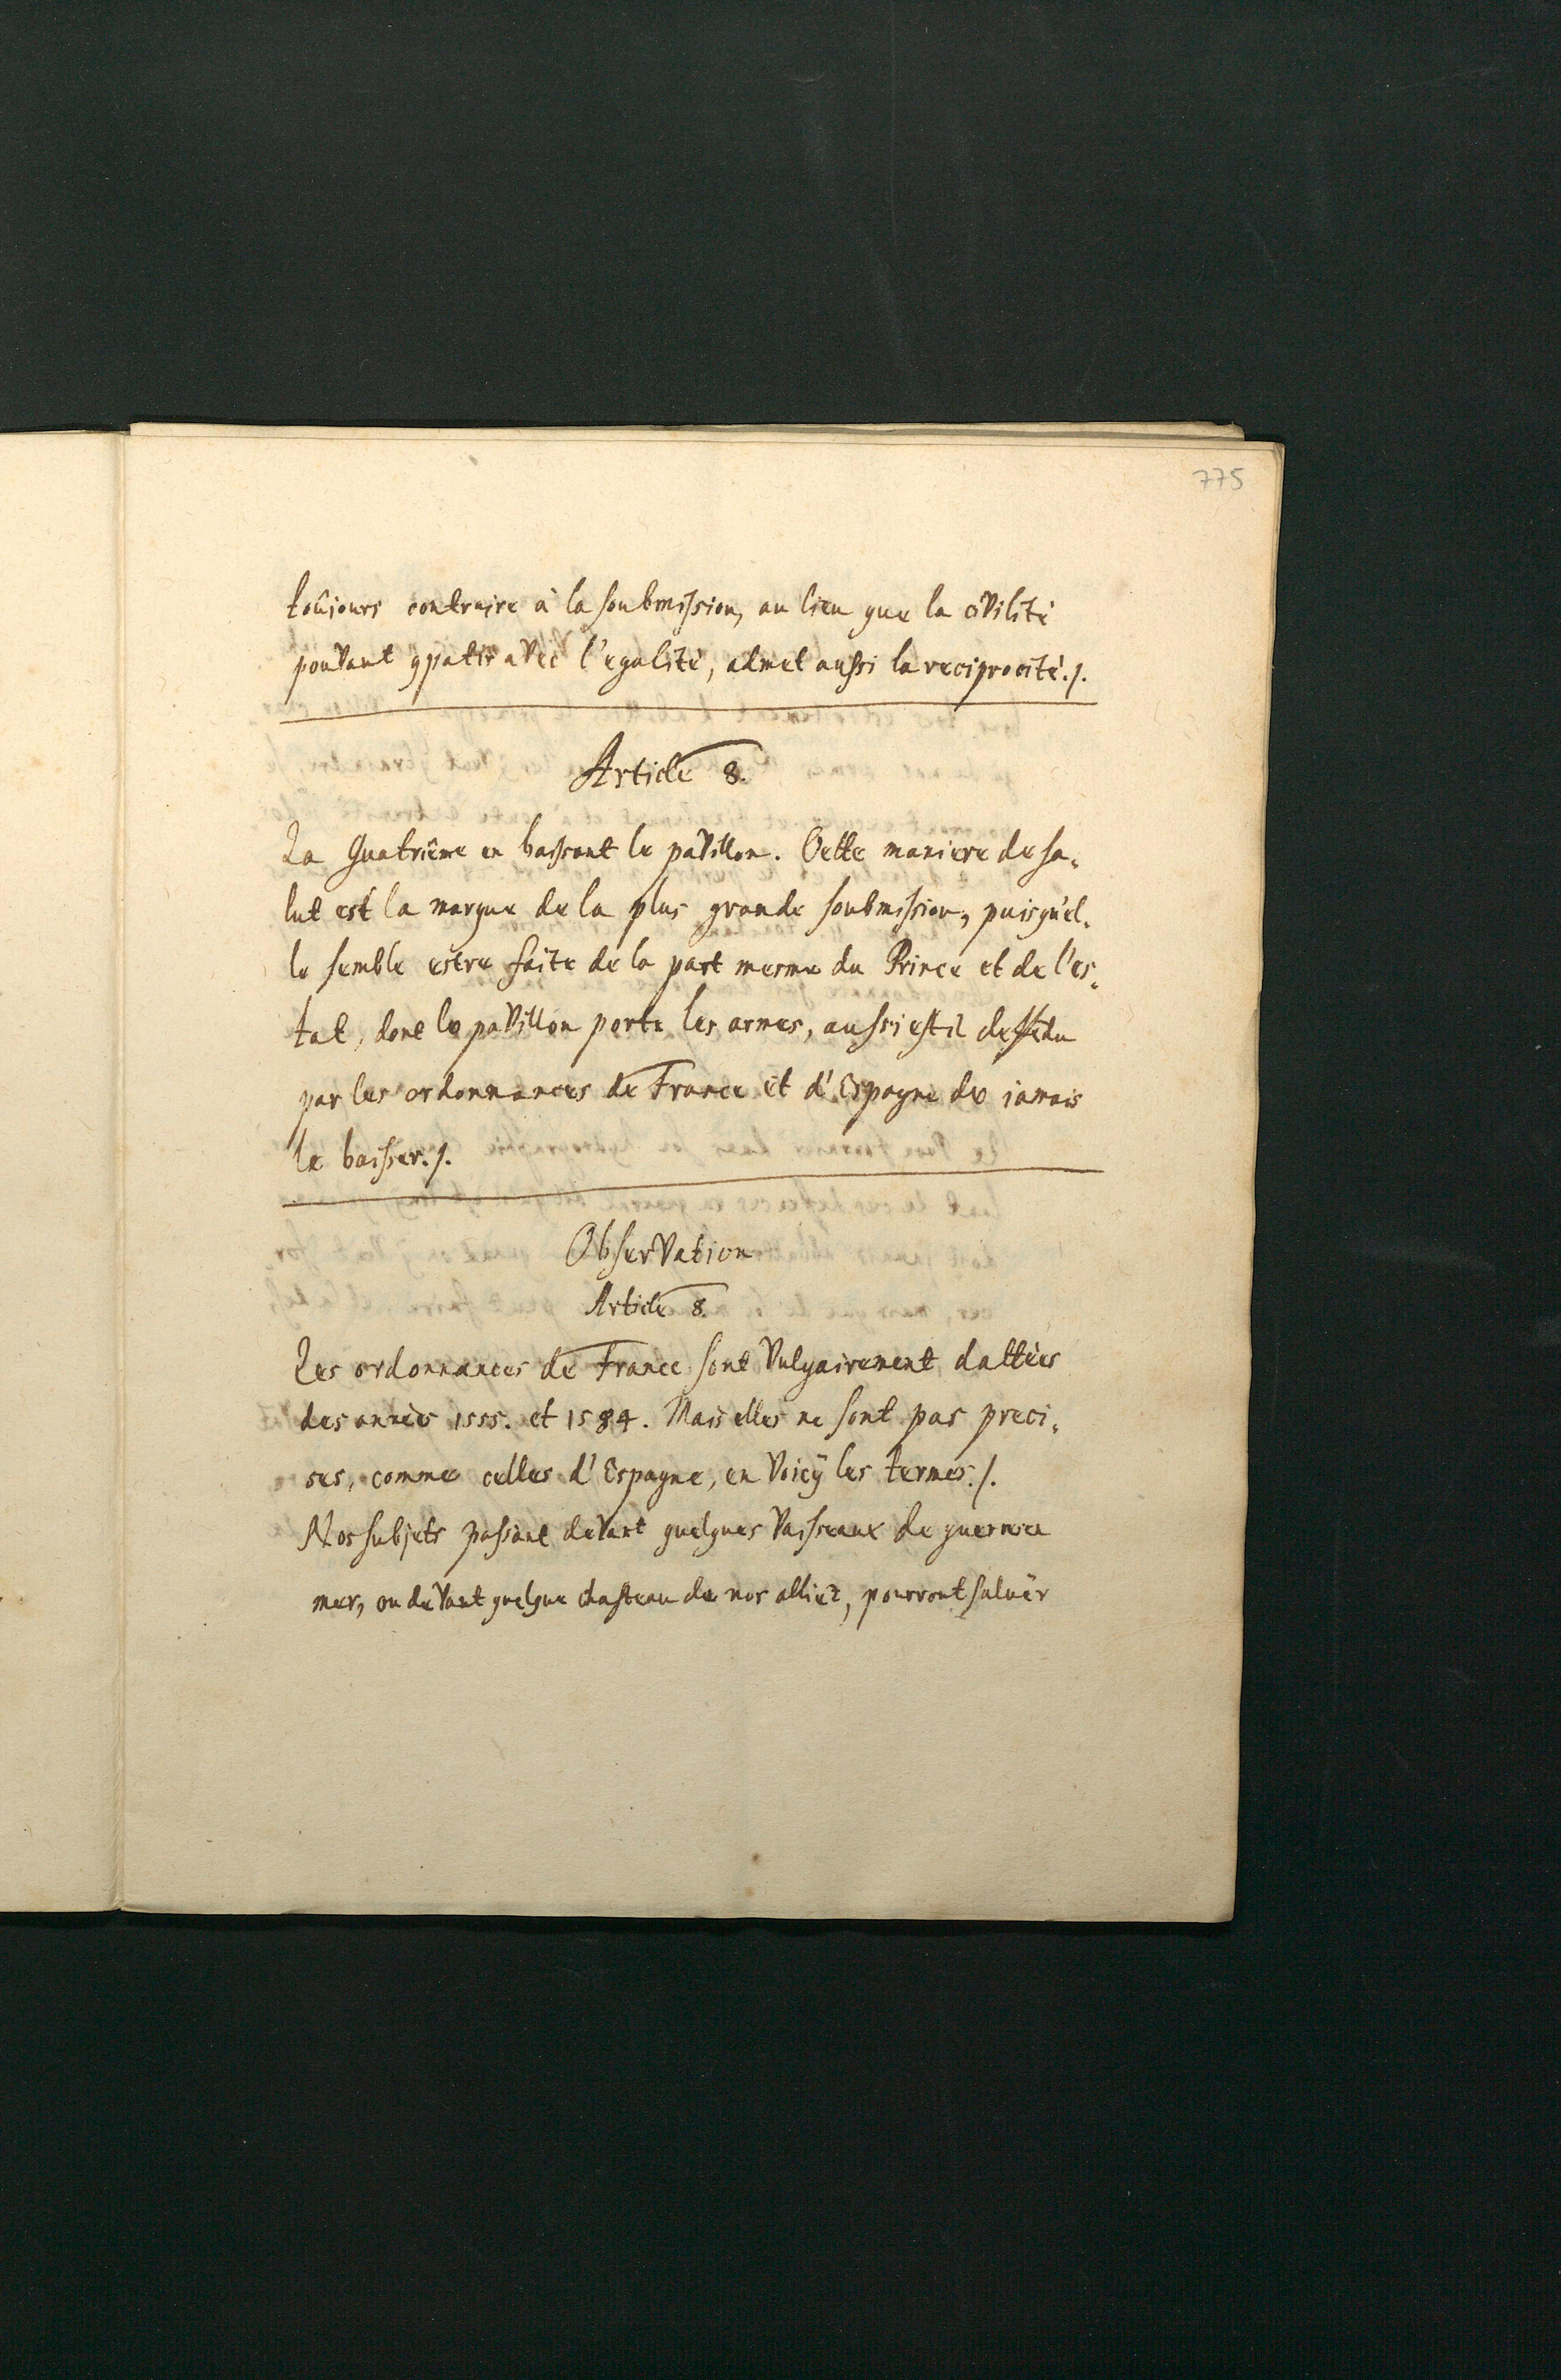 775
toûjours contraire à la soubmission, au lieu que la civilité
pouvant ꝯpatir avec l'egalité, admet aussi la reciprocité./.
Article 8.
La Quatriême en baissant le pavillon. Cette maniere de sa-
lut est la marque de la plus grande soubmission, puisqu'el-
le semble estre faite de la part mesme du Prince et de l'es-
tat, dont le pavillon porte les armes, aussi est il deffẽdu
par les ordonnances de France et d'Espagne de iamais
le baisser./.
Observation
Article 8.
Les ordonnances de France sont vulgairement dattées
des années 1555. et 1584. Mais elles ne sont pas preci-
ses, comme celles d'Espagne, en voicÿ les termes./.
Nos subjets passant devant quelques vaisseaux de guerre
mer, ou devant quelque chasteau de nos alliez, pourront saluër